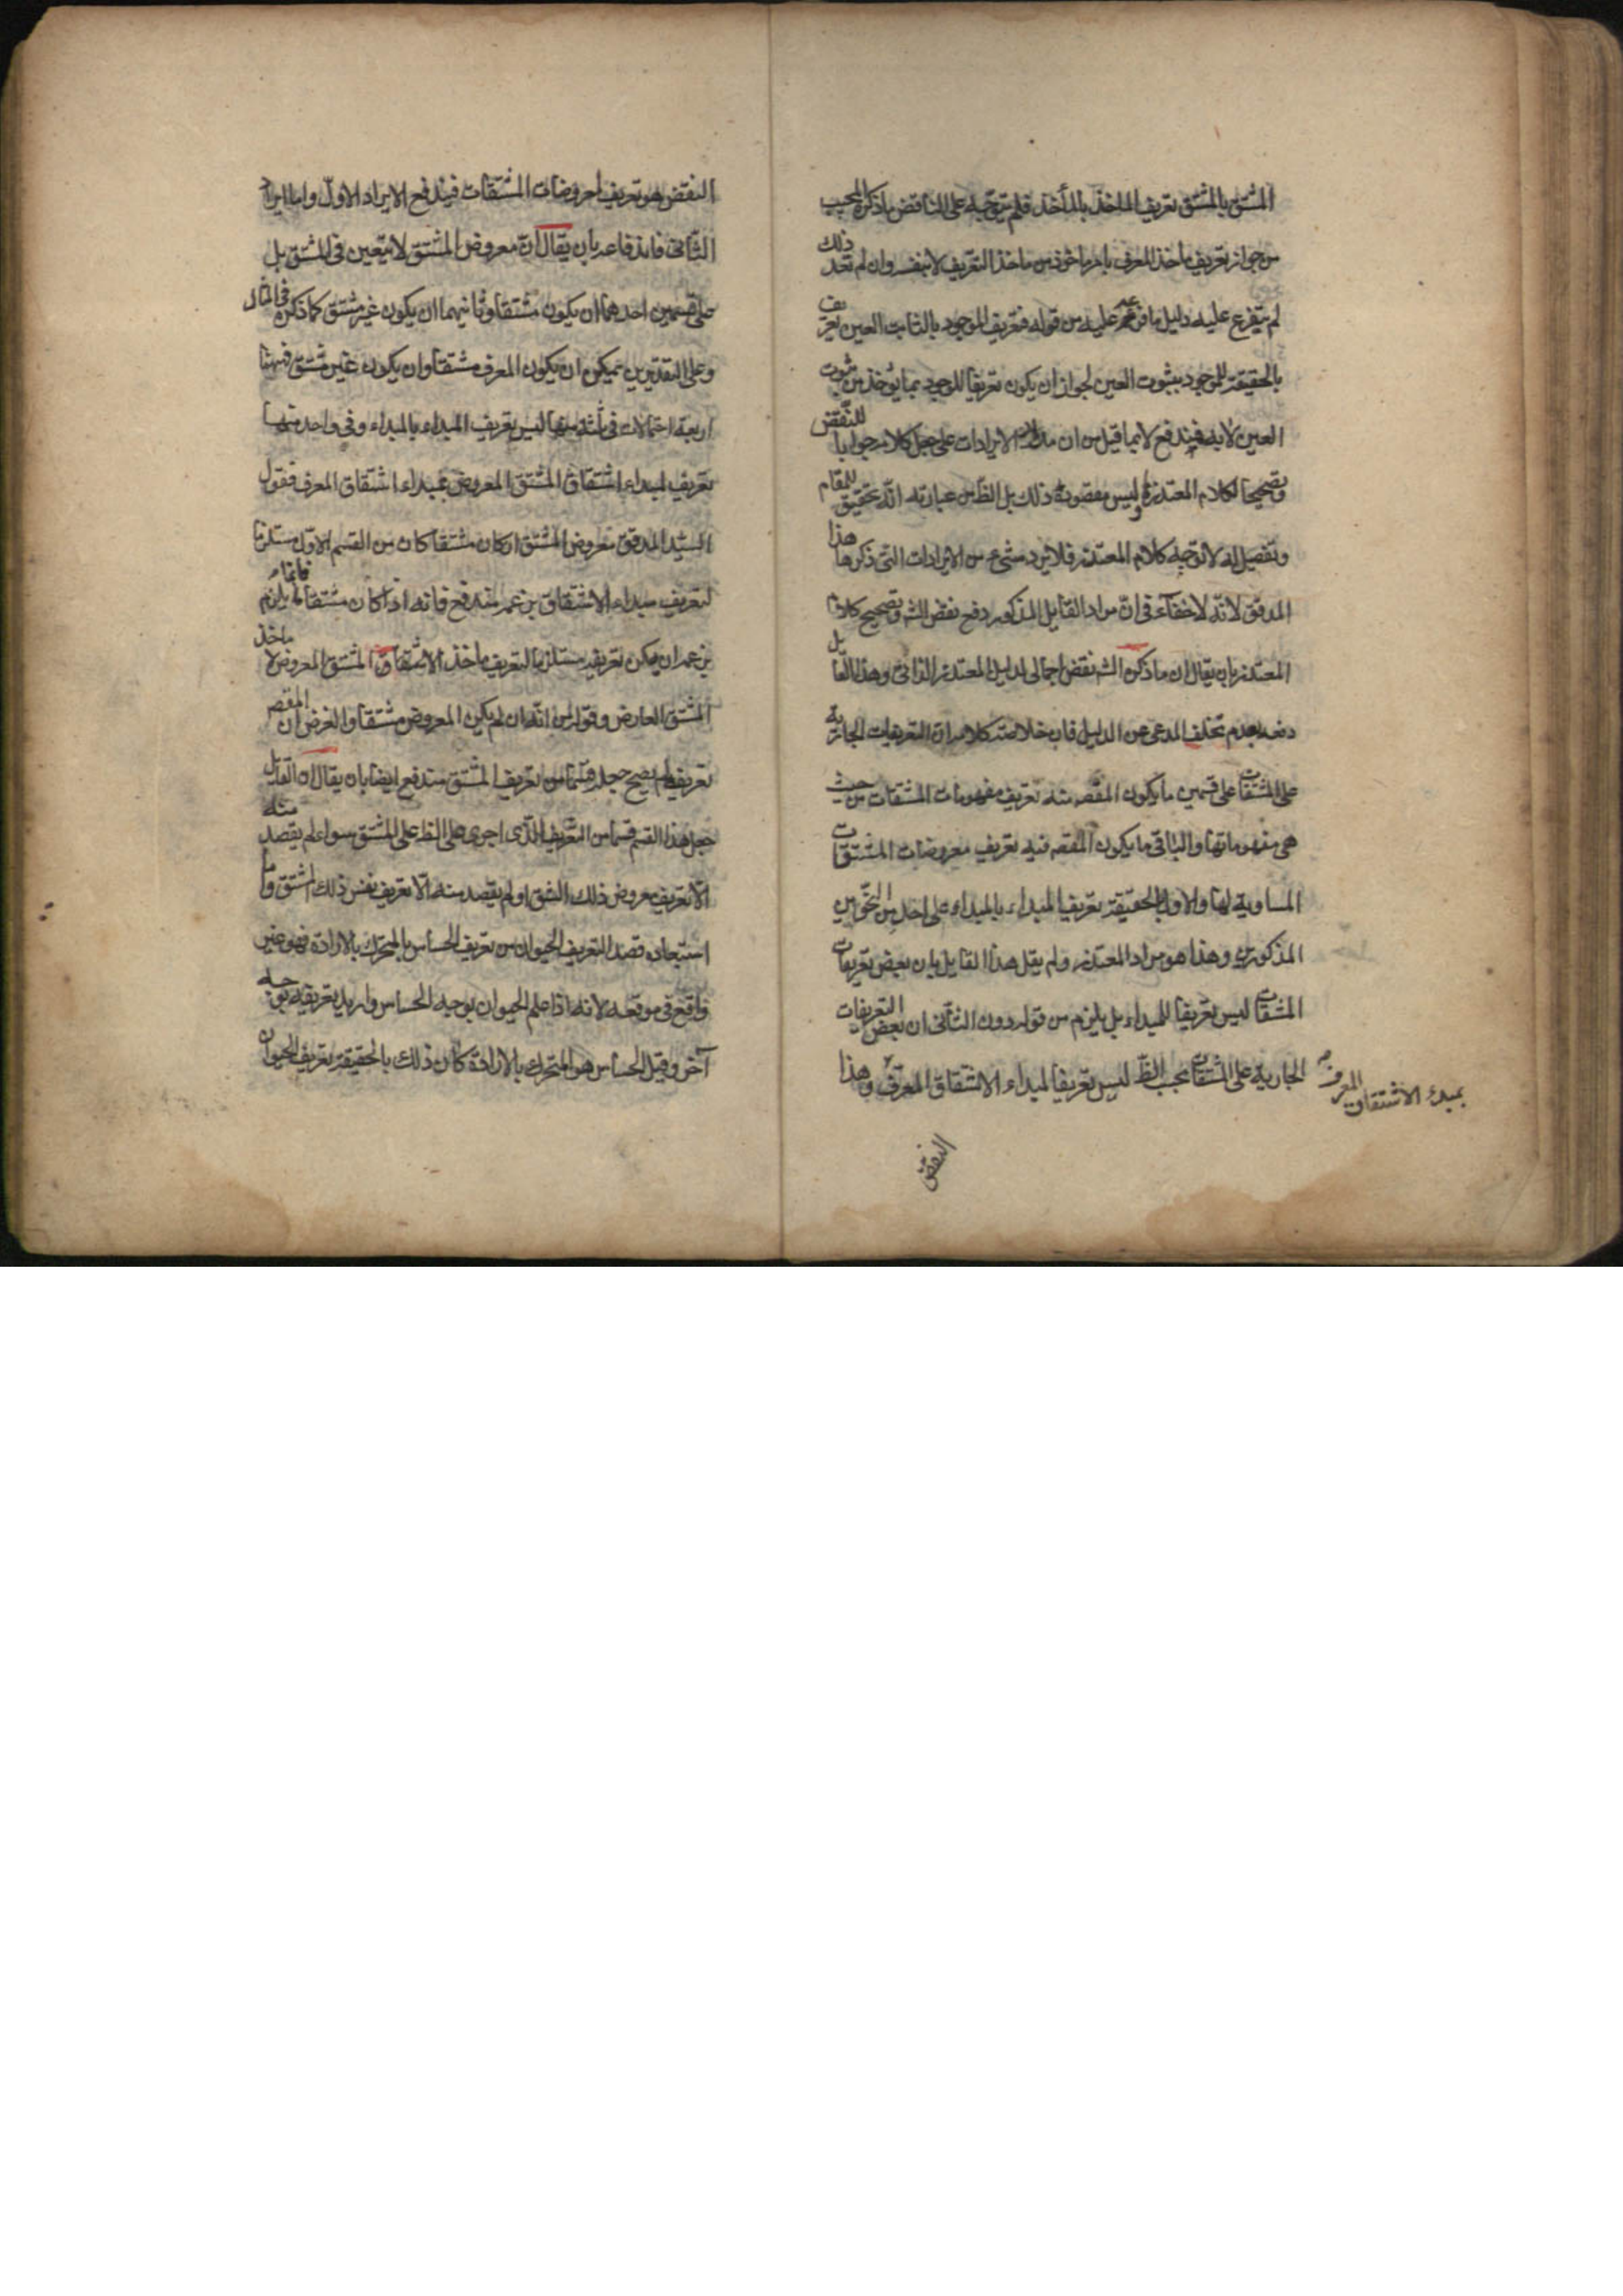 المشتق بالمشتق تعريف الماخذ بالمأخذ فلم يتوجه على الناقض ما ذكره المجيب
من جواز تعريف ماخذ المعرف بامر ماخوذ من ماخذ التعريف لا بنفسه وان لم تعد ذلك
لم يتفرع عليه دليل ما فرعه عليه من قوله فتعريف الموجود بالثابت العين تعريف
بالحقيقة للوجود بثبوت العين لجواز ان يكون تعريفا للوجود بما يؤخذ من ثبوت
العين لا به فيندفع لا بما قيل من ان مدار الايرادات على جعل كلامه جوابا للنقض
وتصحيحا لكلام المعتذر وليس مقصوده ذلك بل الظاهر من عبارته انه تحقيق للمقام
وتفصيل له لا توجيه كلام المعتذر فلا يرد شيء من الايرادات التي ذكرها هذا
المدقق لانه لا خفاء في ان مراد القايل المذكور دفع نقض الشه وتصحيح كلام
المعتذر بان يقال ان ما ذكره الشه نقض اجمالي لدليل المعتذر الذاتي وهذا القايل
دفعه بعدم تخلف المدعى عن الدليل فان خلاصة كلامه ان التعريفات الجارية
على المشتقات على قسمين ما يكون المقصه منه تعريف مفهومات المشتقات من حيث
هي مفهوماتها والباقي ما يكون المقصه فيه تعريف معروضات المشتقات
المساوية لها والاول بالحقيقة تعريف المبداء بالمبداء على احد من النحوين
المذكورين وهذا هو مراد المعتذر ولم يقل هذا القايل بان بعض تعريفات
المشتقات ليس تعريفا للمبداء بل يلزم من قوله دون الثاني ان بعض التعريفات
الجارية على المشتقات بحسب الظ ليس تعريفا لمبداء الاشتقاق المعرف وهذا
بمبدء الاشتقاق المعرف
النقض
النقض هو تعريف لمعروضات المشتقات فيندفع الايراد الاول واما ايراد
الثاني فاندفاعه بان يقال ان معروض المشتق لا يتعين في المشتق بل
على قسمين احدهما ان يكون مشتقا وثانيهما ان يكون غير مشتق كما ذكره في المثال
وعلى التقديرين يمكن ان يكون المعرف مشتقا وان يكون غير مشتق فهنا
اربعة احتمالات في ثلثة منها ليس تعريف المبداء بالمبداء وفي واحد منها
تعريف لمبداء اشتقاق المشتق المعروض بمبداء اشتقاق المعرف فقول
السيد المدقق معروض المشتق ان كان مشتقا كان من القسم الاول مستلزما
لتعريف مبداء الاشتقاق بزعمه مندفع فانه اذا كان مشتقا فانما يلزم
بزعمه ان يكون تعريفه مستلزما لتعريف ماخذ الاشتقاق المشتق المعروض لا ماخذ
المشتق العارض وقوله من انه ان لم يكن المعروض مشتقا والغرض ان المقصه
تعريفه لم يصح جعله قسما من تعريف المشتق مندفع ايضا بان يقال ان القايل
جعل هذا القسم قسما من التعريف الذي اجرى على الظ على المشتق سواء لم يقصد منه
الا تعريف معروض ذلك المشتق او لم يقصد منه الا تعريف نفس ذلك المشتق وما
استبعاده قصد التعريف الحيوان من تعريف الحساس بالمتحرك بالارادة فهو غير
واقع في موقعه لانه اذا علم الحيوان بوجه الحساس واريد تعريفه بوجه
آخر وقيل الحساس هو المتحرك بالارادة كان ذلك بالحقيقة تعريف الحيوان